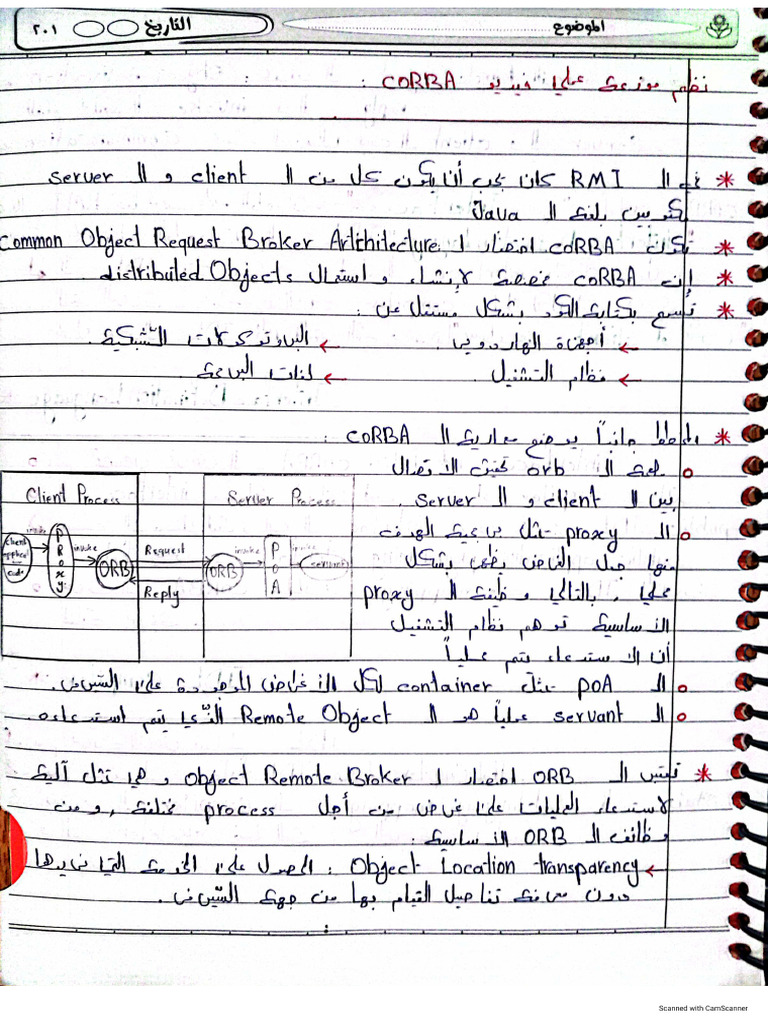 الموضوع
التاريخ
٢٠١
نظم موزعة عملي فيديو CORBA :
* في الـ RMI كان يجب أن يكون كل من الـ client و الـ server
مكتوبين بلغة الـ Java
* تكون CORBA اختصار لـ Common Object Request Broker Artchitecture
* إن CORBA مخصصة لإنشاء و استعمال distributed Objects
* تسمح بكتابة الكود بشكل مستقل عن :
← أجهزة الهاردوير. ← البروتوكولات الشبكية.
← نظام التشغيل. ← لغات البرمجة.
* المخطط جانباً يوضح معمارية الـ CORBA :
o طبقة الـ orb تحقق الاتصال
بين الـ client و الـ server
o الـ proxy تمثل برمجية الهدف
منها جعل الغرض يظهر بشكل
محلي ، بالتالي وظيفة الـ proxy
الأساسية توهم نظام التشغيل
أن الاستدعاء يتم محلياً
Client Process
Server Process
client
applicat
code
invoke
Proxy
invoke
ORB
Request
Reply
ORB
invoke
POA
invoke
servant
o الـ POA تمثل container لكل الأغراض الموجودة على السيرفر.
o الـ servant عملياً هو الـ Remote Object الذي يتم استدعاءه
* تعتبر الـ ORB اختصار لـ Object Remote Broker و هي تمثل آلية
لاستدعاء العمليات على غرض من أجل process مختلفة ، ومن
وظائف الـ ORB الأساسية :
← Object Location transparency : الحصول على الخدمة التي نريدها
دون معرفة تفاصيل القيام بها من جهة السيرفر.
Scanned with CamScanner